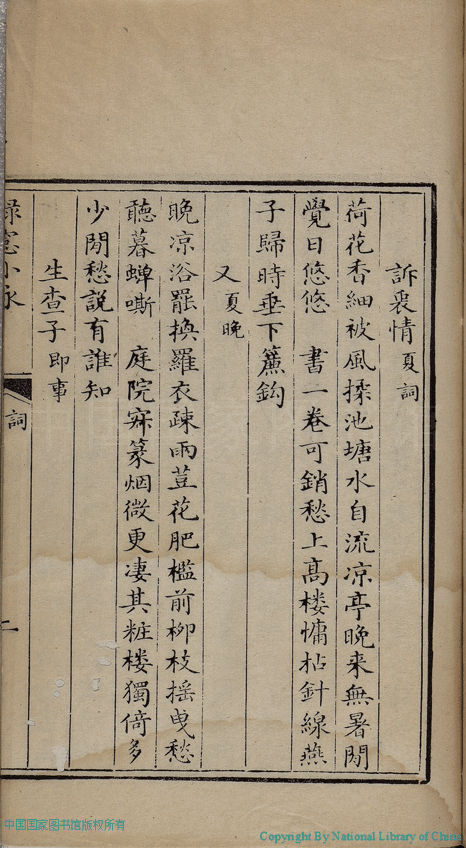 訴衷情 夏詞
荷花香細被風揉池塘水自流凉亭晚来無暑閒
覺日悠悠 書一卷可銷愁上高楼慵拈針線燕
子歸時垂下簾鈎
又 夏晚
晚凉浴罷換羅衣疎雨荳花肥檻前柳枝揺曳愁
聽暮蟬嘶 庭院寂篆烟微更凄其粧楼獨倚多
少閒愁説有誰知
生查子 即事
緑窓小咏
詞
二
中国国家图书馆版权所有
Copyright By National Library of China